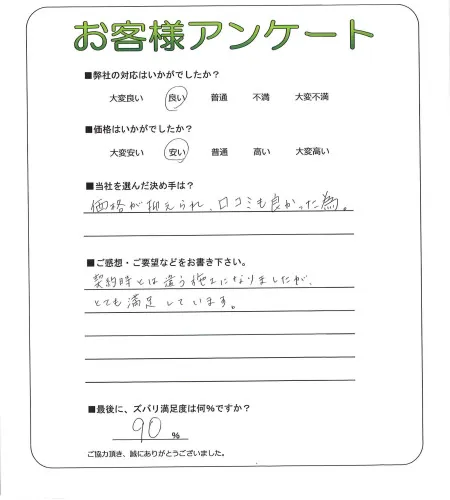 お客様アンケート
■弊社の対応はいかがでしたか?
大変良い 良い 普通 不満 大変不満
■価格はいかがでしたか?
大変安い 安い 普通 高い 大変高い
■当社を選んだ決め手は?
価格が抑えられ、口コミも良かった為。
■ご感想・ご要望などをお書き下さい。
契約時とは違う施工になりましたが、
とても満足しています。
■最後に、ズバリ満足度は何%ですか?
90 %
ご協力頂き、誠にありがとうございました。